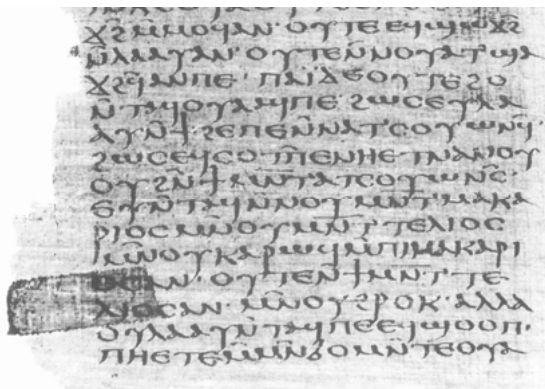 ϫϩ̄ⲙ̄ⲙⲟϥⲁⲛ· ⲟⲩⲧⲉⲉϥϣⲱϫϩ̄
ⲛ̄ⲗⲁⲁⲩⲁⲛ· ⲟⲩⲧⲉⲛ̄ⲛⲟⲩⲁⲧϣⲁ
ϫϩϥ̄ⲁⲛⲡⲉ· ⲡⲁⲓ̈ⲇⲉⲟⲩⲧⲉϩⲟ
ⲛ̄ⲧⲁϥⲟⲩⲁⲁϥⲡⲉ ϩⲱⲥⲉⲩⲗⲁ
ⲁⲩⲛ̄ϯ· ϩⲉⲡⲉⲛ̄ⲛⲁⲧⲥⲟⲩⲱⲛϥ̄·
ϩⲱⲥⲉϥⲥⲟⲧⲡ̄ⲉⲛⲏⲉⲧⲛⲁⲛⲟⲩ
ⲟⲩϩⲛ̄ϯⲙⲛ̄ⲧⲁⲧⲥⲟⲩⲱⲛⲥ̄·
ⲉⲩⲛ̄ⲧⲁϥⲛ̄ⲛⲟⲩⲙⲛ̄ⲧ·ⲙⲁⲕⲁ
ⲣⲓⲟⲥⲙⲛ̄ⲟⲩⲙⲛ̄ⲧ·ⲧⲉⲗⲓⲟⲥ
ⲙⲛ̄ⲟⲩⲕⲁⲣⲱϥⲙ̄ⲡⲓⲙⲁⲕⲁⲣⲓ
ⲟⲥⲁⲛ· ⲟⲩⲧⲉⲛ̄ϯⲙⲛ̄ⲧ·ⲧⲉ
ⲗⲓⲟⲥⲁⲛ· ⲙⲛ̄ⲟⲩϩⲣⲟⲕ· ⲁⲗⲗⲁ
ⲟⲩⲗⲁⲁⲩⲛ̄ⲧⲁϥⲡⲉⲉϥϣⲟⲟⲡ·
ⲡⲏⲉⲧⲉⲙ̄ⲙⲛ̄ϭⲟⲙⲛ̄ⲧⲉⲟⲩⲁ